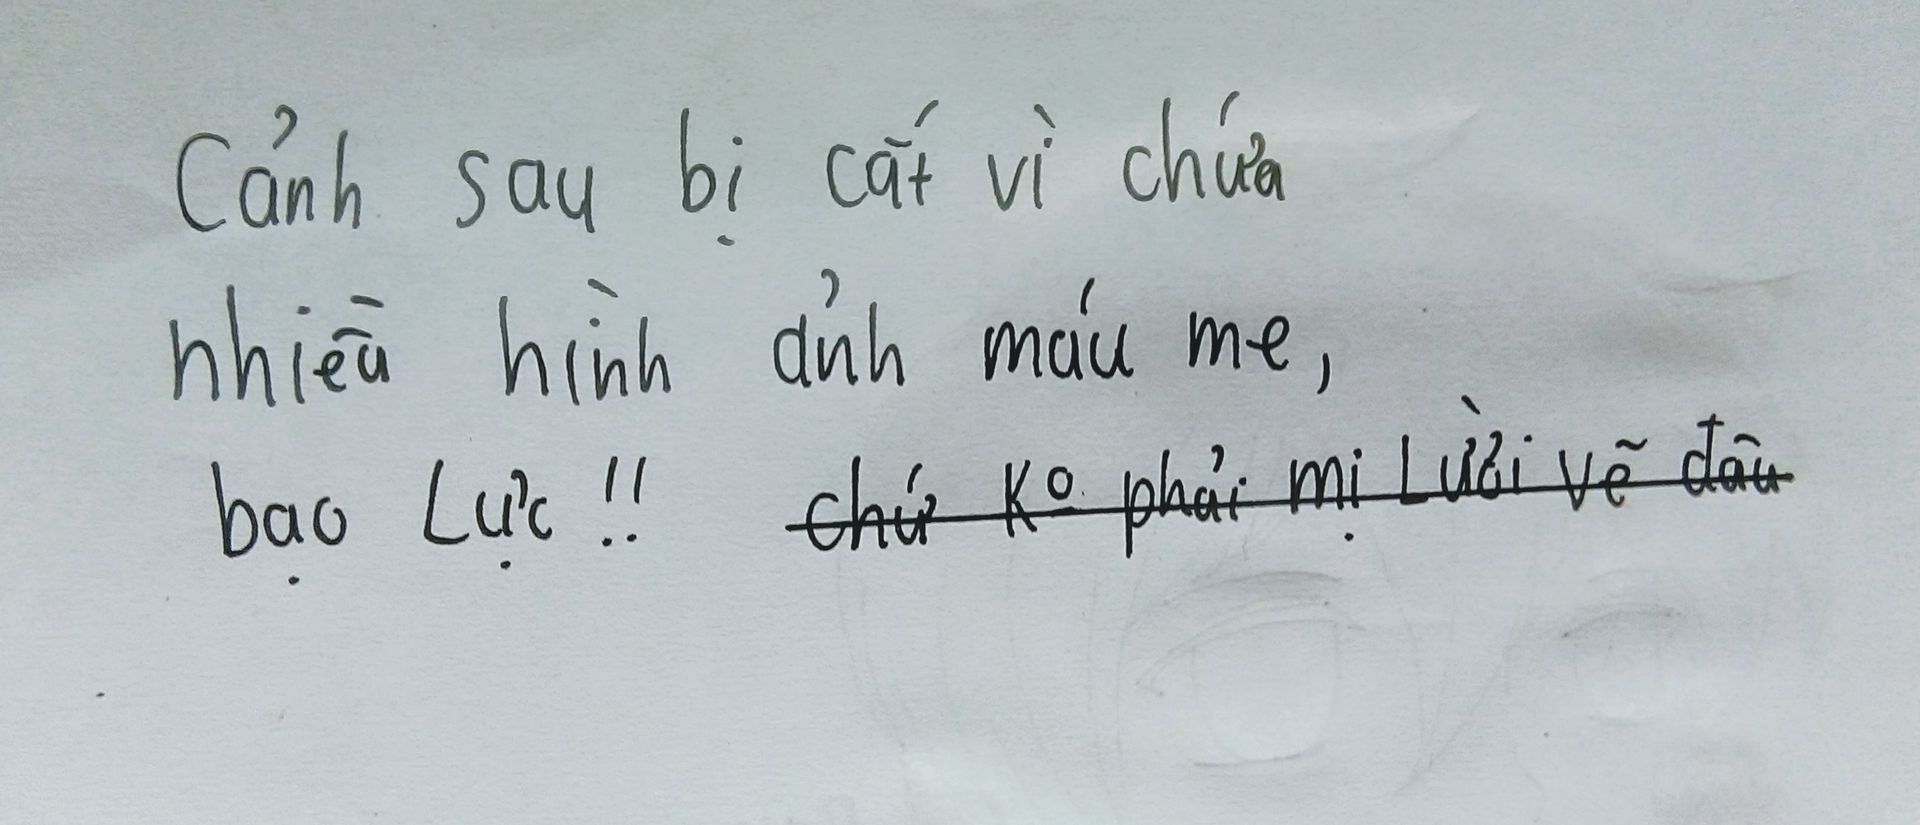 Cảnh sau bị cắt vì chứa
nhiều hình ảnh máu me,
bạo Lực !! chứ Ko phải mị Lười vẽ đâu